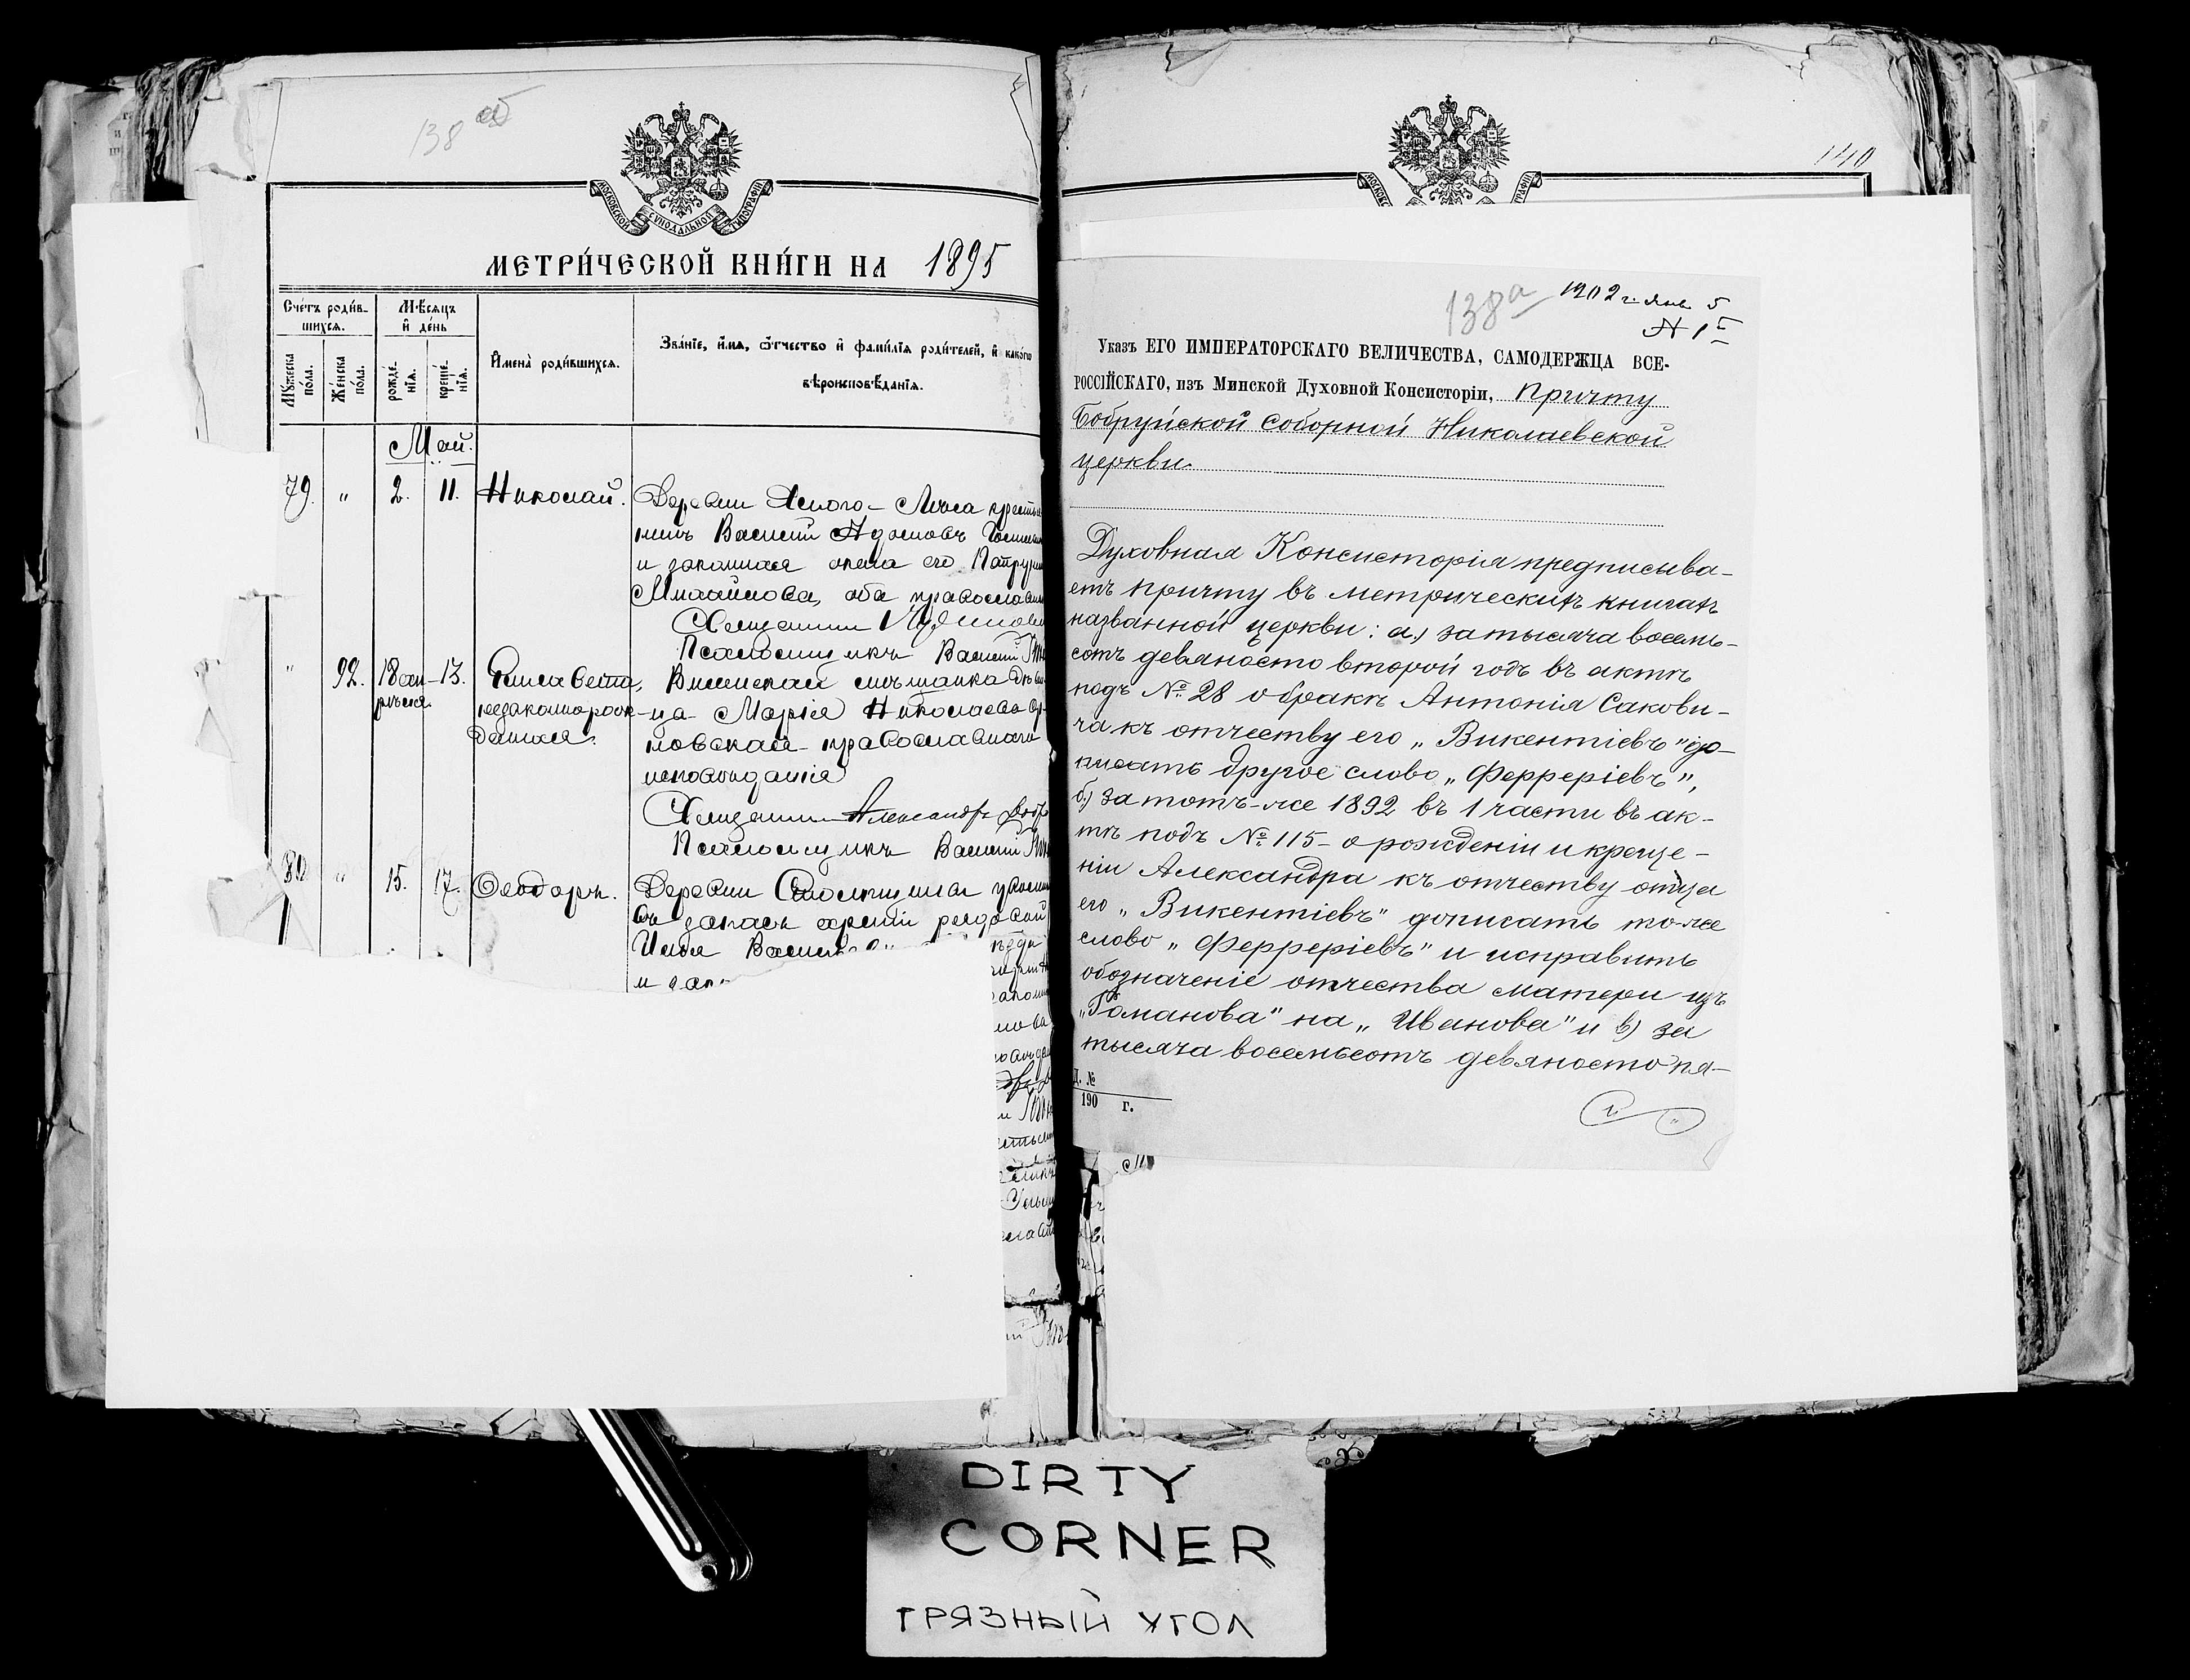 138 об
МОСКОВСКОЙ СѴНОДАЛЬНОЙ ТИПОГРАФІИ
МЕТРИ́ЧЕСКОЙ КНИ́ГИ НА 1895
Сче́тъ роди́в-
шихся.
Мѣ́сяцъ
и҆ де́нь
Мꙋ́жеска
по́ла.
Же́нска
по́ла.
рожде́-
нїѧ.
креще́-
нїѧ.
И҆мена̀ роди́вшихся.
Зва́нїе, и҆́мѧ, ѻ҆́тчество и҆ фами́лїѧ роди́телей, и҆ како́гѡ
вѣроисповѣ́данїѧ.
Май.
79. " 2. 11. Николай.
Деревни Яснаго-Лѣса
Василій Адамовъ
и законная жена его
Михайлова, оба
Священникъ
Псаломщикъ Василій
" 92. 18 ап-
рѣля. 13. Елисавета,
незаконорож-
данная.
Виленская мѣщанка дѣви-
ца Марія Николаева
православнаго
исповѣданія
Священникъ Александръ
Псаломщикъ Василій
80 " 15. 17. Ѳеодоръ.
Деревни
въ запасъ арміи рядовой
Илья
и зак
140
138а
1902 г. Янв. 5
№ 1
Указъ ЕГО ИМПЕРАТОРСКАГО ВЕЛИЧЕСТВА, САМОДЕРЖЦА ВСЕ-
РОССІЙСКАГО, изъ Минской Духовной Консисторіи, Причту
Бобруйской соборной Николаевской
церкви.
Духовная Консисторія предписыва-
етъ причту въ метрическихъ книгахъ
названной церкви: а) за тысяча восемь-
сотъ девяносто второй годъ въ актѣ
подъ № 28 о бракѣ Антонія Сакови-
ча къ отчеству его „Викентіевъ" до-
писать другое слово „Феррeріевъ",
б) за тотъ-же 1892 въ 1 части въ ак-
тѣ подъ № 115 - о рожденіи и креще-
ніи Александра къ отчеству отца
его „Викентіевъ" дописать то-же
слово „Феррeріевъ" и исправить
обозначеніе отчества матери изъ
„Романова" на „Иванова" и в) за
тысяча восемьсотъ девяносто пя-
Д. №
190 г.
DIRTY
CORNER
ГРЯЗНЫЙ УГОЛ